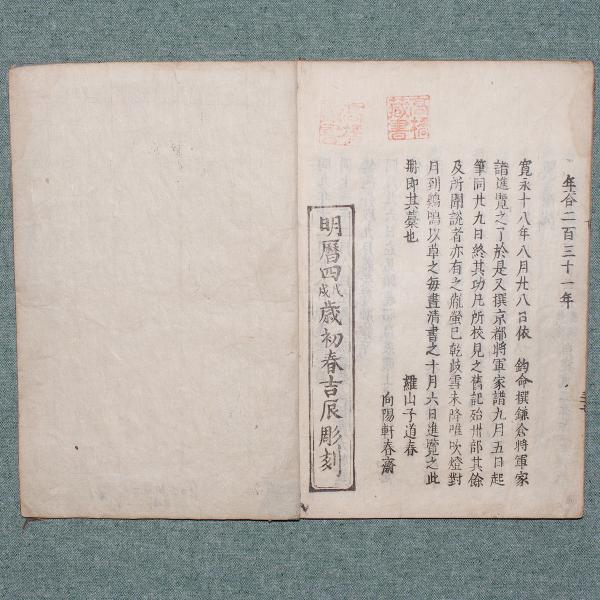 年合二百三十一年
寛永十八年八月廿八日依　鈞命撰鎌倉将軍家
譜進覧之了於是又撰京都将軍家譜九月五日起
筆同廿九日終其功凡所校見之舊記殆卅部其餘
及所聞談者亦有之胤螢已乾歧雪未降唯吹燈對
月到鷄鳴以草之毎晝清書之十月六日進覧之此
冊即其藁也
羅山子道春
向陽軒春齋
明暦四戊戌歳初春吉辰彫刻
高橋
藏書